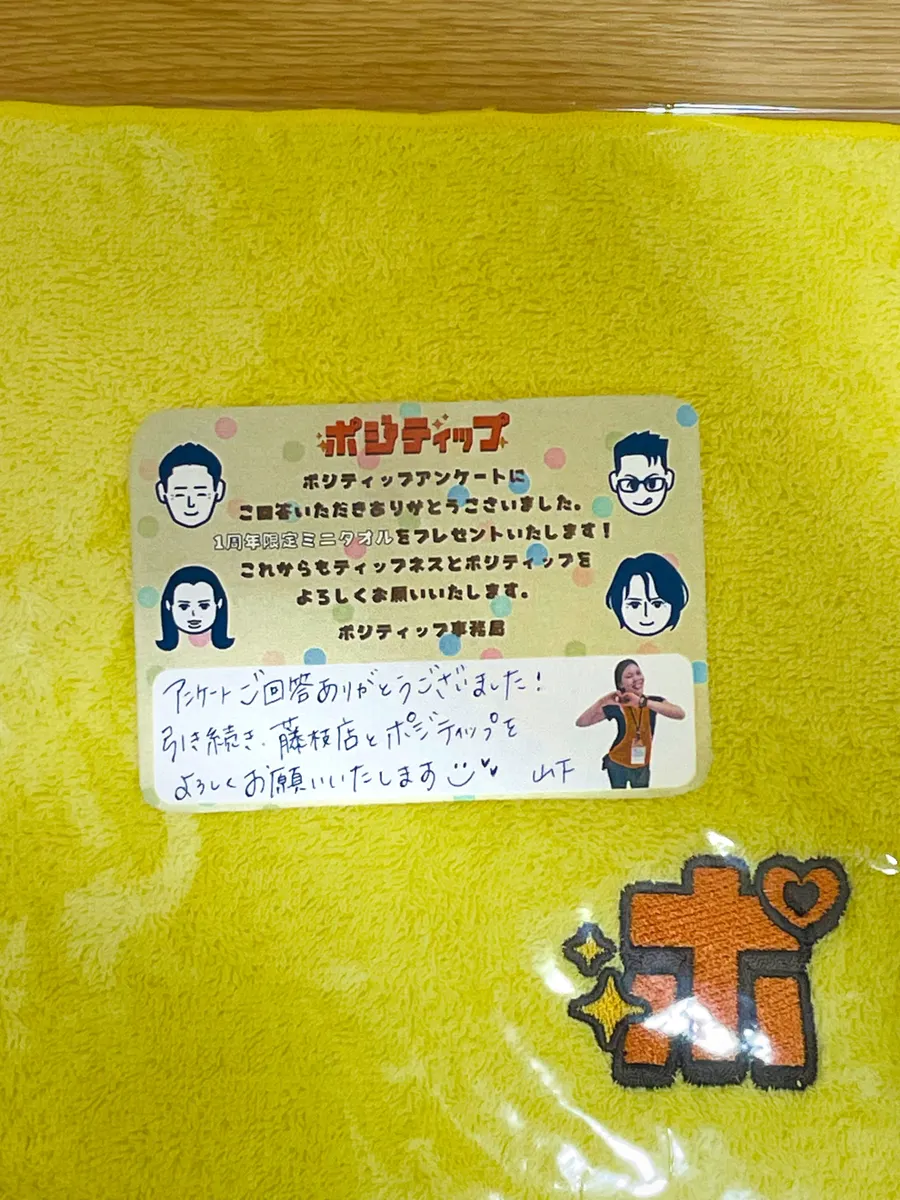 ポジティップ
ポジティップアンケートに
ご回答いただきありがとうございました。
1周年限定ミニタオルをプレゼントいたします！
これからもティップネスとポジティップを
よろしくお願いいたします。
ポジティップ事務局
アンケートご回答ありがとうございました!
引き続き、藤枝店とポジティップを
よろしくお願いいたします
山下
ポ